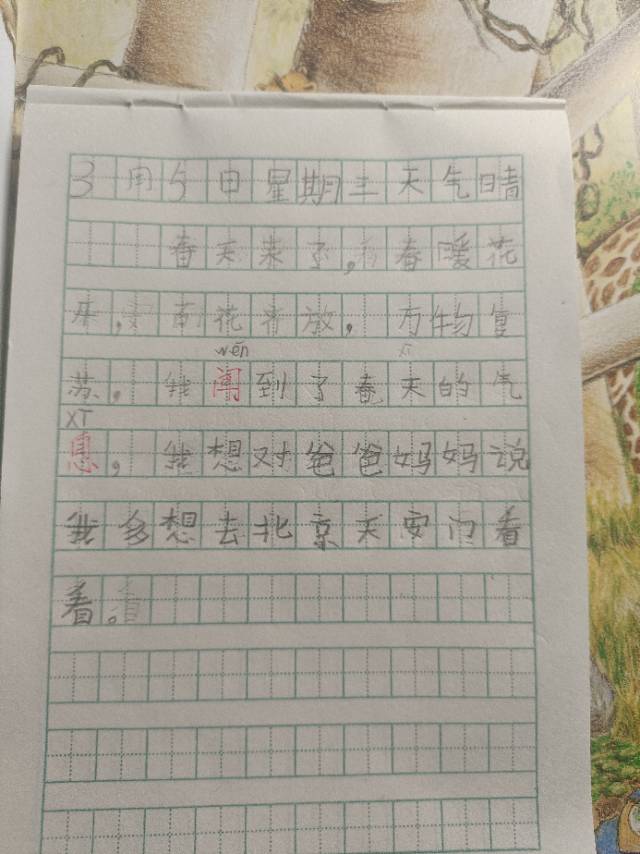 3月5日星期三天气晴
春天来了,春暖花
开,百花齐放,万物复
wén
苏,我闻到了春天的气
xī
息,我想对爸爸妈妈说
我多想去北京天安门看
看。